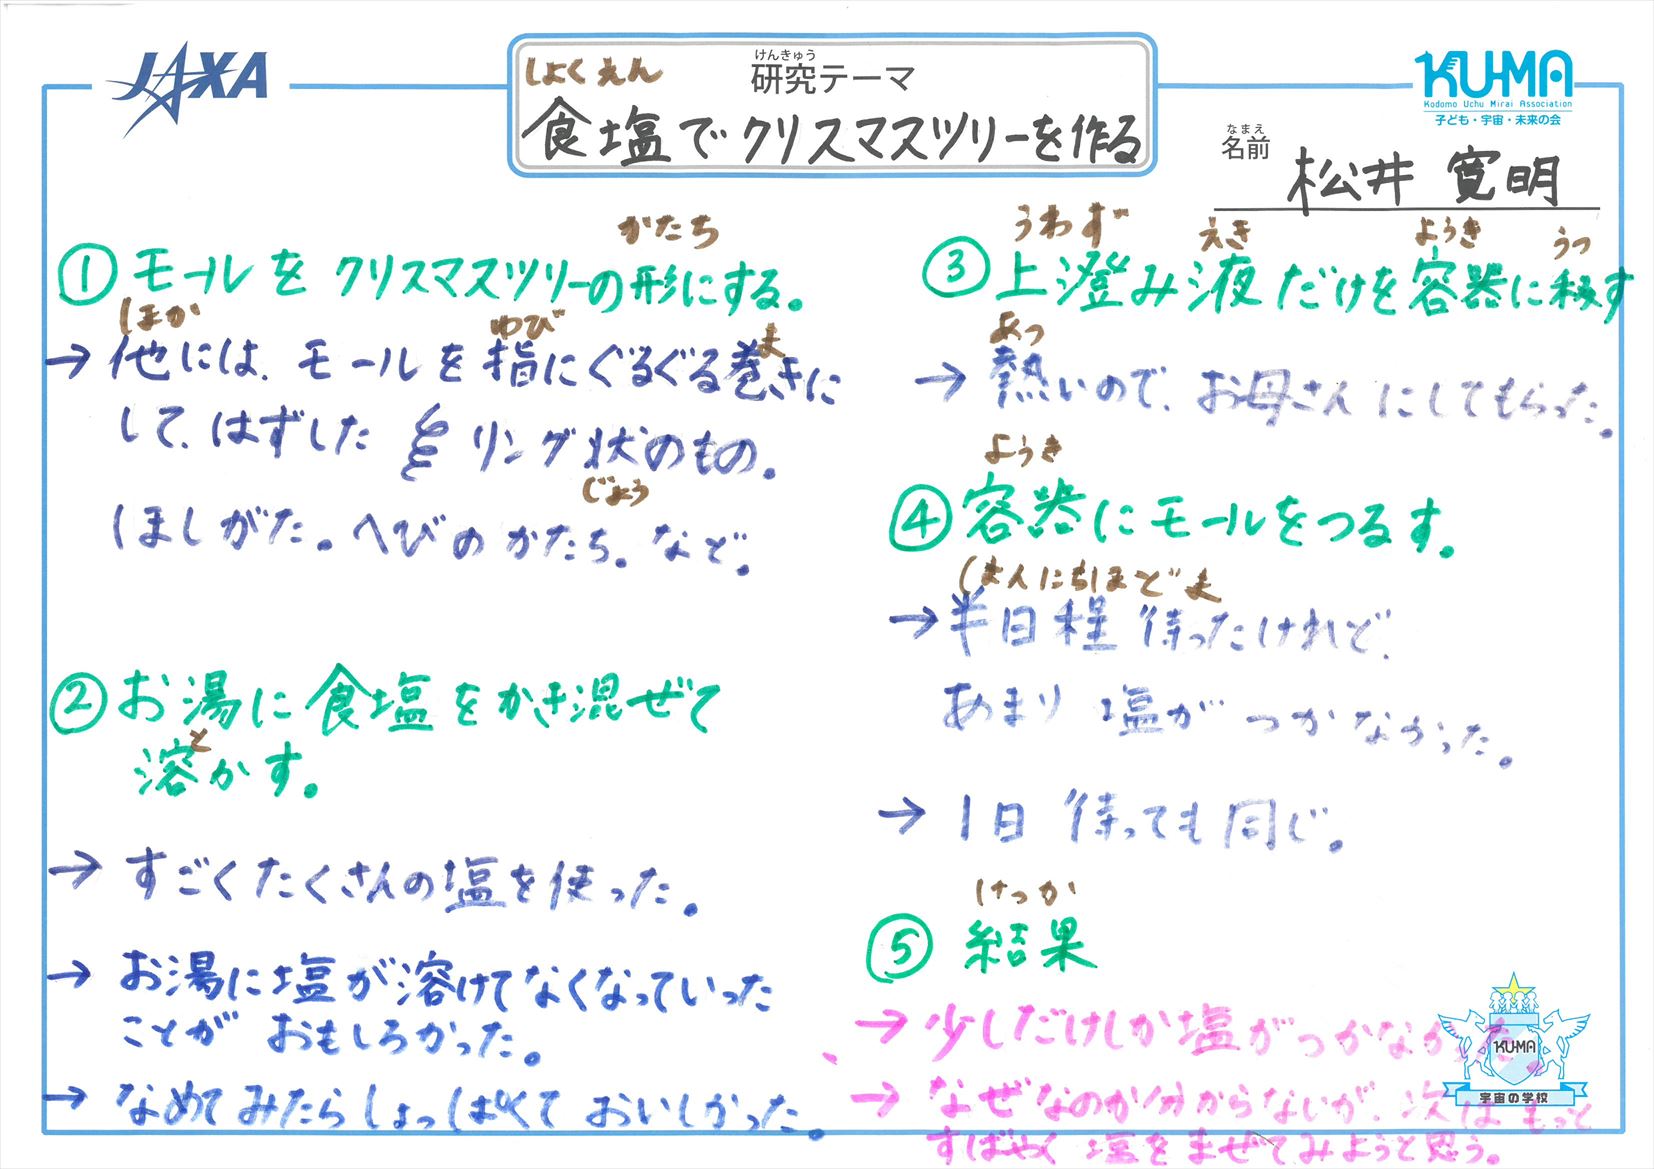 JAXA
けんきゅう
研究テーマ
しょくえん
食塩でクリスマスツリーを作る
KU-MA
Kodomo Uchu Mirai Association
子ども・宇宙・未来の会
なまえ
名前
松井 寛明
かたち
①モールをクリスマスツリーの形にする。
ほか ゆび ま
→他には、モールを指にぐるぐる巻きに
して、はずした リング状のもの。
じょう
ほしがた。へびのかたち。など。
②お湯に食塩をかき混ぜて
と
溶かす。
→すごくたくさんの塩を使った。
→お湯に塩が溶けてなくなっていった
ことがおもしろかった。
→なめてみたらしょっぱくておいしかった。
うわず えき ようき うつ
③上澄み液だけを容器に移す
あつ
→熱いので、お母さんにしてもらった。
ようき
④容器にモールをつるす。
はんにちほど ま
→半日程待ったけれど、
あまり塩がつかなかった。
→1日待っても同じ。
けっか
⑤結果
→少ししだけしか塩がつかなかった。
→なぜなのか分からないが、次はもっと
すばやく塩をまぜてみようと思う。
KU-MA
宇宙の学校